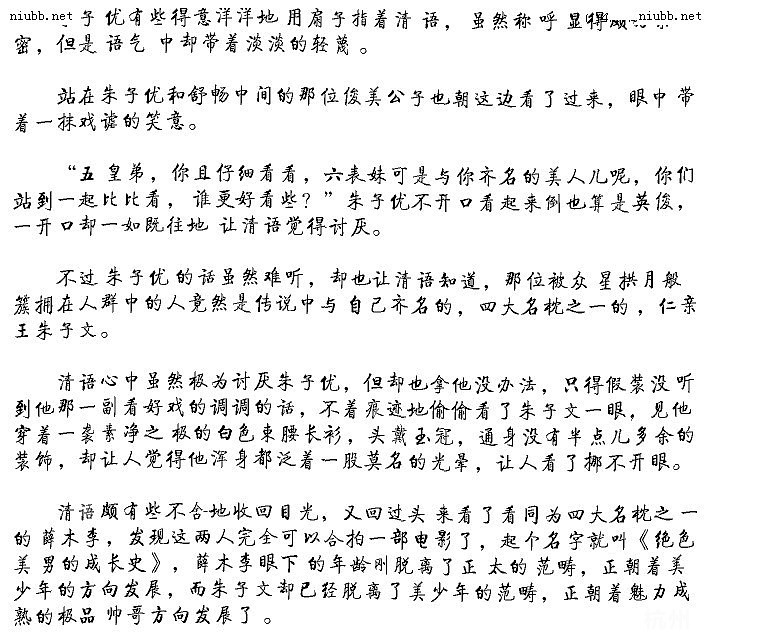 niubb.net niubb.net
子优有些得意洋洋地用扇子指着清语，虽然称呼显得
密，但是语气中却带着淡淡的轻蔑。
站在朱子优和舒畅中间的那位俊美公子也朝这边看了过来，眼中带
着一抹戏谑的笑意。
“五皇弟，你且仔细看看，六表妹可是与你齐名的美人儿呢，你们
站到一起比比看，谁更好看些？”朱子优不开口看起来倒也算是英俊，
一开口却一如既往地让清语觉得讨厌。
不过朱子优的话虽然难听，却也让清语知道，那位被众星拱月般
簇拥在人群中的人竟然是传说中与自己齐名的，四大名枕之一的，仁亲
王朱子文。
清语心中虽然极为讨厌朱子优，但却也拿他没办法，只得假装没听
到他那一副看好戏的调调的话，不着痕迹地偷偷看了朱子文一眼，见他
穿着一袭素净之极的白色束腰长衫，头戴玉冠，通身没有半点儿多余的
装饰，却让人觉得他浑身都泛着一股莫名的光晕，让人看了挪不开眼。
清语颇有些不舍地收回目光，又回过头来看了看同为四大名枕之一
的薛木李，发现这两人完全可以合拍一部电影了，起个名字就叫《绝色
美男的成长史》，薛木李眼下的年龄刚脱离了正太的范畴，正朝着美
少年的方向发展，而朱子文却已经脱离了美少年的范畴，正朝着魅力成
熟的极品帅哥方向发展了。